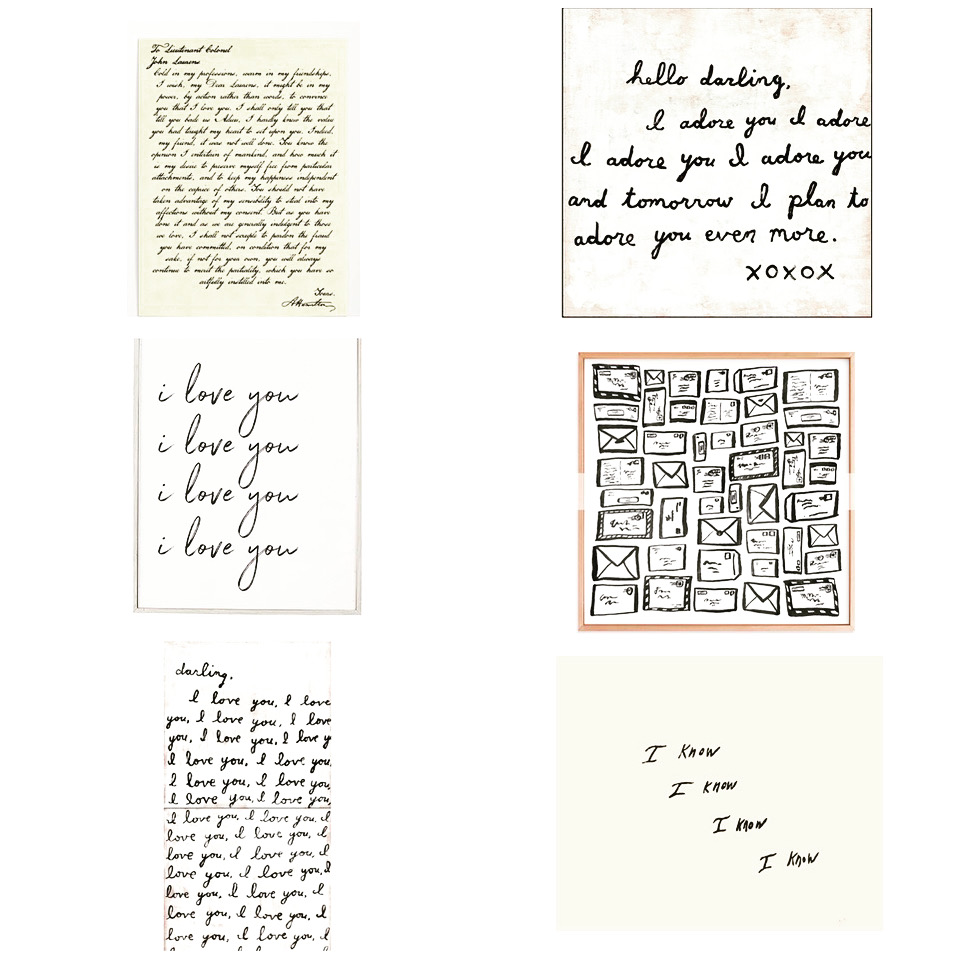 To Lieutinant Colonel
John Laurens
Cold in my professions, warm in my friendships,
I wish, my Dear Laurens, it might be in my
power, by action rather than words, to convince
you that I love you. I shall only tell you that
till you bade us Adieu, I hardly knew the value
you had taught my heart to set upon you. Indeed,
my friend, it was not well done. You know the
opinion I entertain of mankind, and how much it
is my desire to preserve myself free from particular
attachments, and to keep my happiness independent
on the caprice of others. You should not have
taken advantage of my sensibility to steal into my
affections without my consent. But as you have
done it and as we are generally indulgent to those
we love, I shall not scruple to pardon the fraud
you have committed, on condition that for my
sake, if not for your own, you will always
continue to merit the partiality, which you have so
artfully instilled into me.
Yours,
hello darling,
I adore you I adore
I adore you I adore you
and tomorrow I plan to
adore you even more.
xoxox
i love you
i love you
i love you
i love you
darling,
I love you, I love
you, I love you, I love
you, I love you, I love y
I love you, I love you,
I love you, I love you,
I love you, I love you,
I love you, I love you, I
love you, I love you, I
love you, I love you, I
love you, I love you, I
love you, I love you, I
love you, I love you, I
love you, I love you, I
I Know
I Know
I Know
I Know